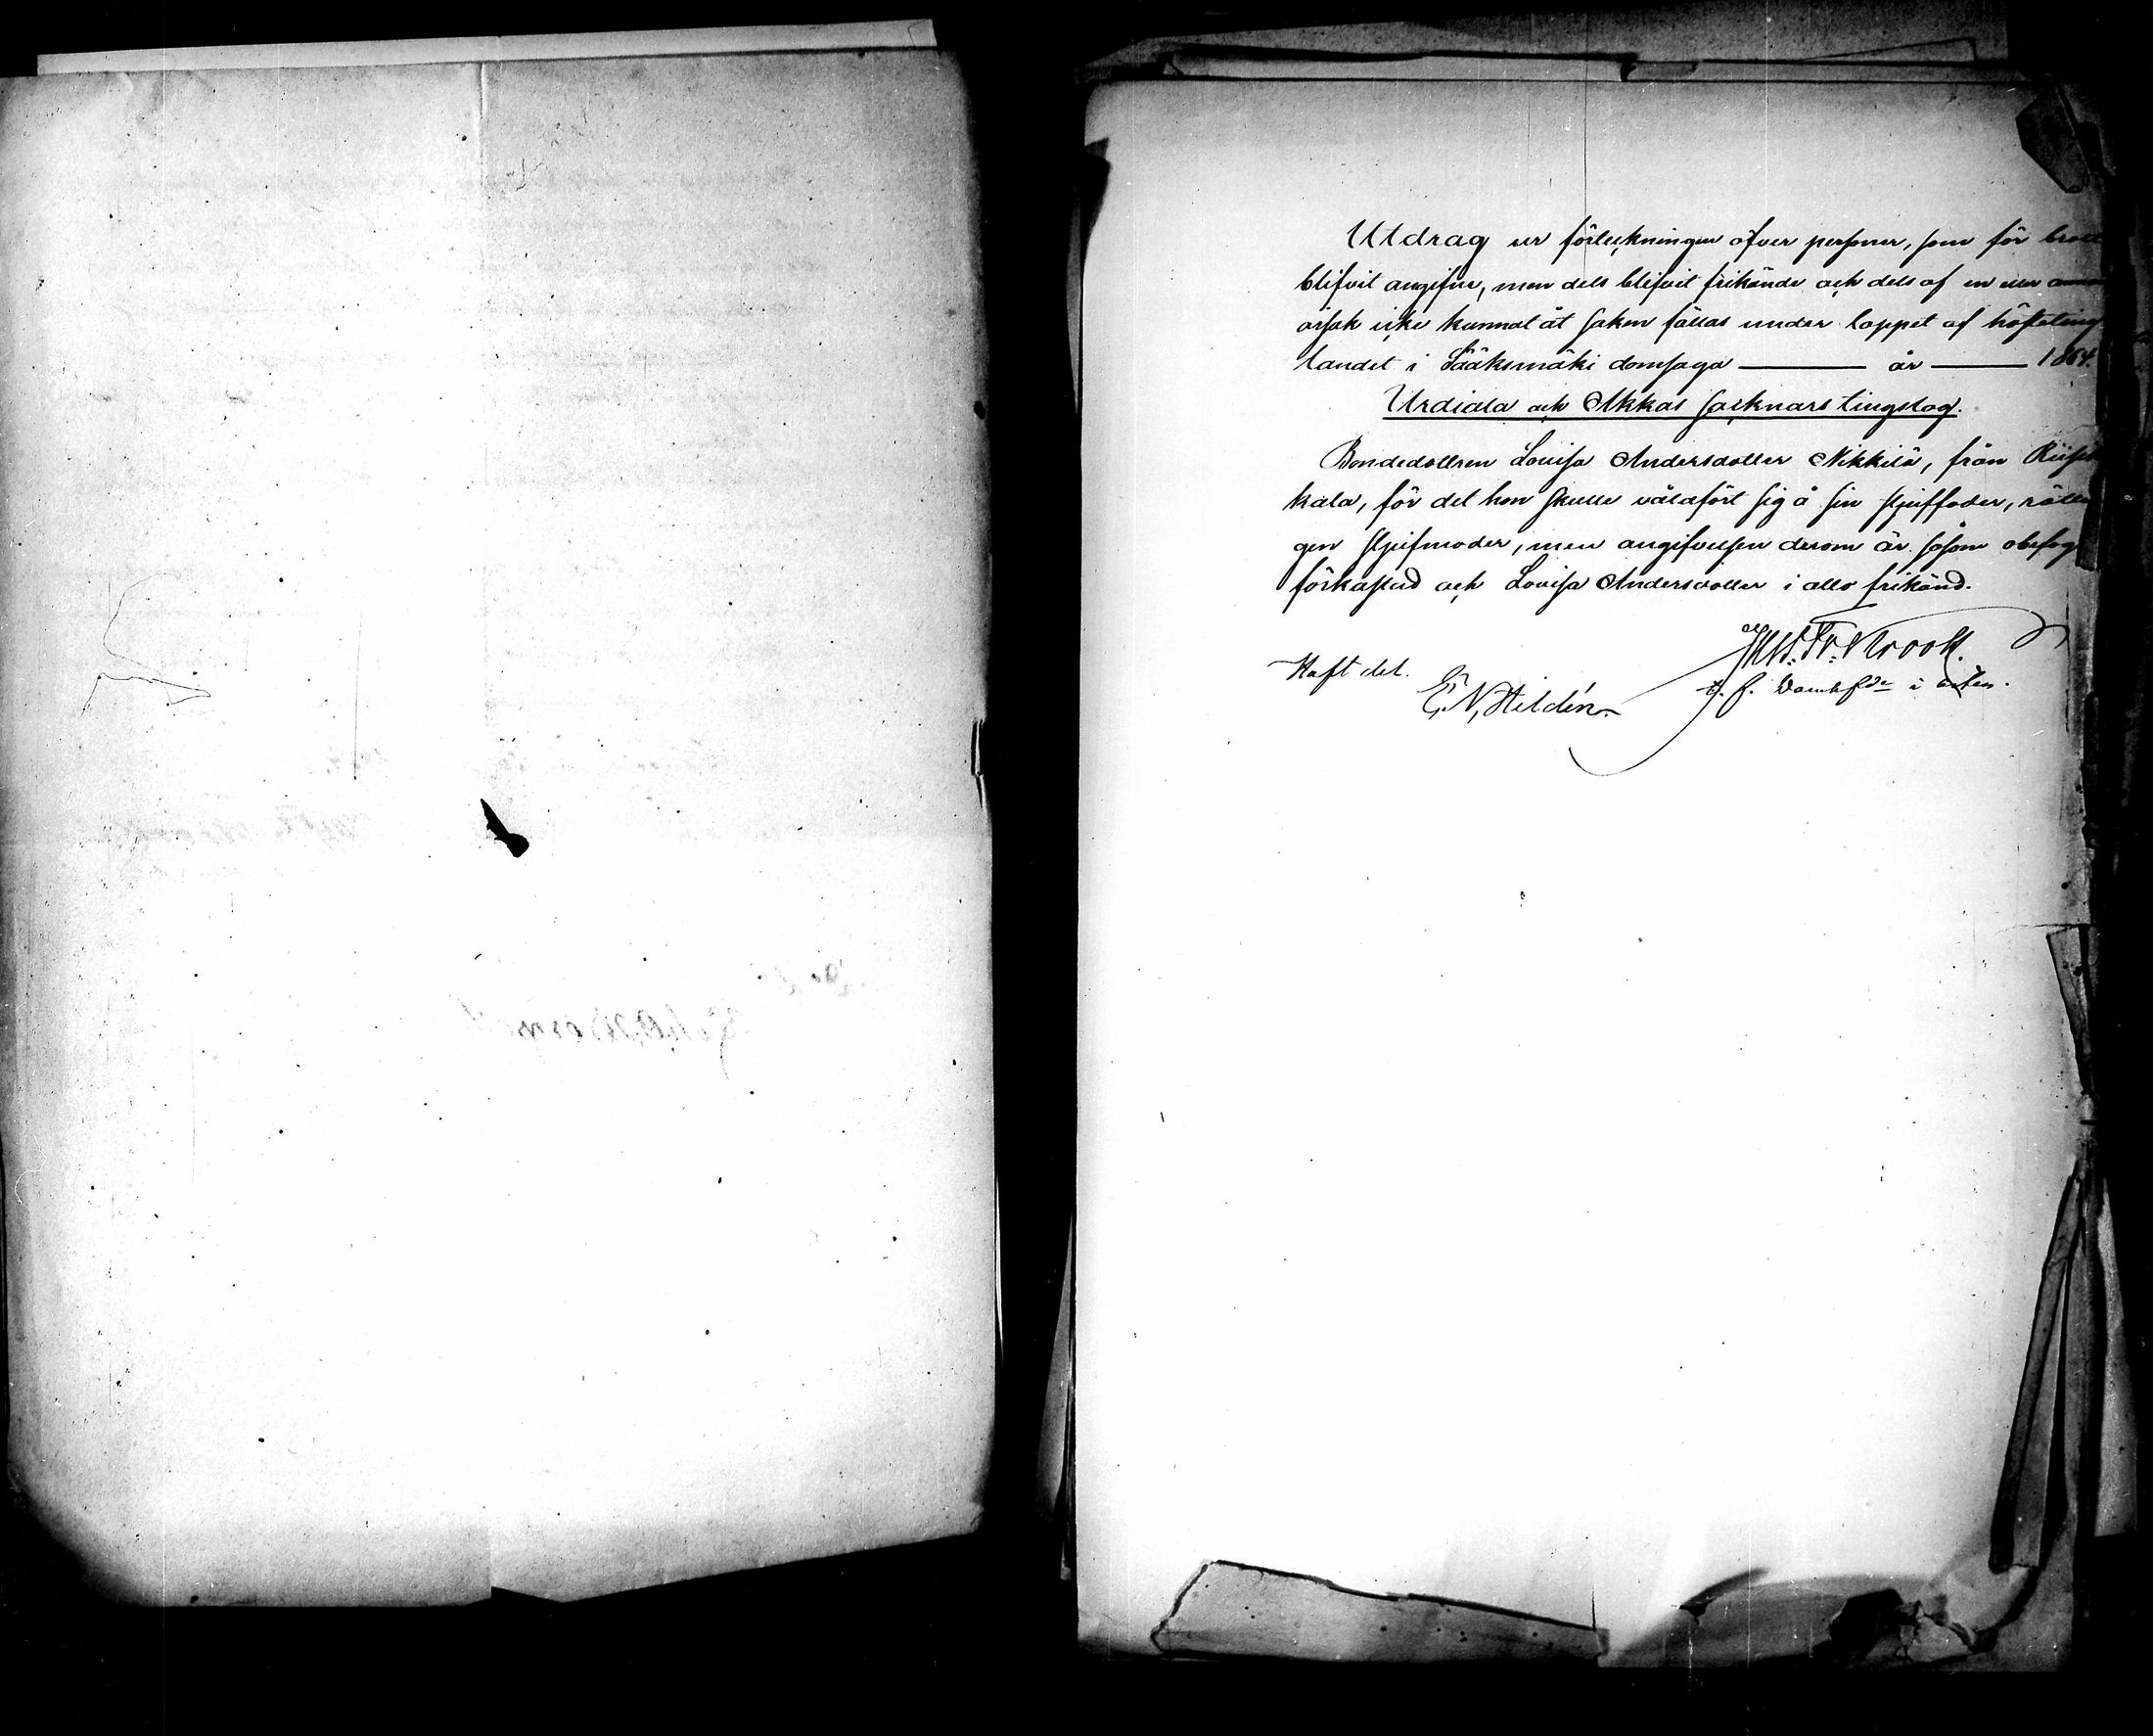 Utdrag ur förteckningen öfver personer, som för brott
blifvit angifne, men dels blifvit frikände och dels af en eller annan
orsak icke kunnat åt saken fällas under loppet af hösteting
landet i Sääksmäki domsaga — år — 1864.
Urdiala och Akkas socknars tingslag.
Bondedottren Lovisa Andersdotter Nikkilä, från
kala, för det hon skulle våldfört sig å sin stjuffader, rätte
gen stjufmoder, men angifvelsen derom är såsom obefog
förkastad och Lovisa Andersdotter i allo frikänd.
Krook.
Haft del. E. N. Heldén. i orten.